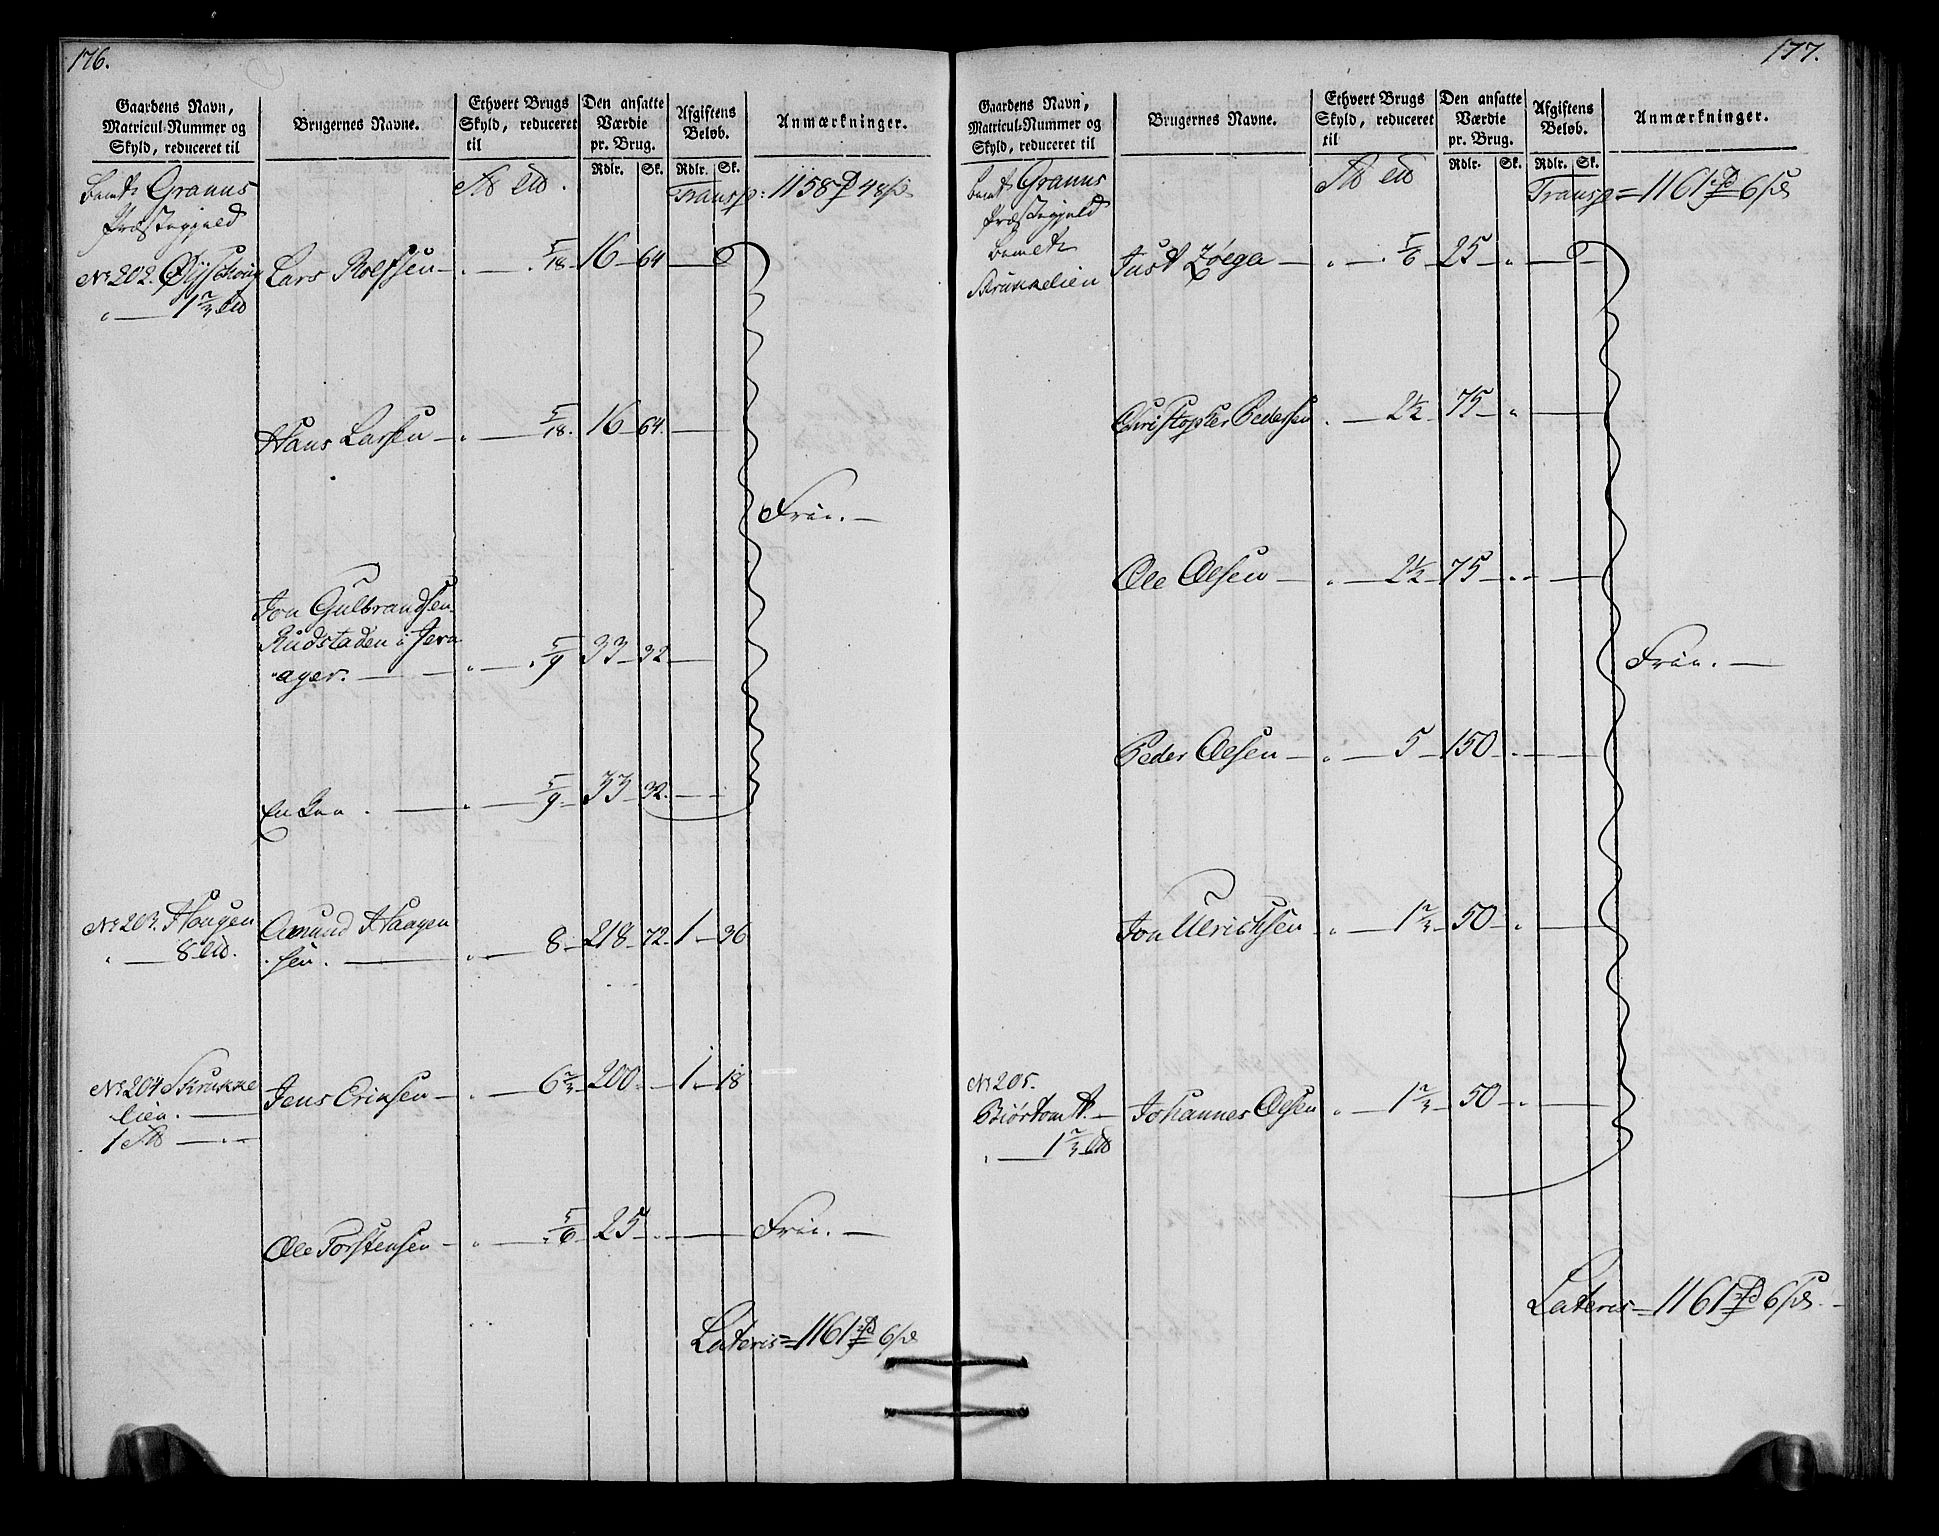 176.
Gaardens Navn, Matricul-Nummer og Skyld, reduceret til
Brugernes Navne.
Ethvert Brugs Skyld, reduceret til
Den ansatte Værdie pr. Brug.
Rdlr. Sk.
Afgiftens Beløb.
Rdlr. Sk.
Anmærkninger.
Bemte Granns
Præstegjeld
Transp: 1158 48
No 202.
1 2/3
Lars Rolfsen - 5/18 - 16 - 64 - 0
Hans Larsen - 5/18 - 16 - 64
Frie.
Jon Gulbrandsen
Rudstaden i Jern
ager. - 5/9 - 33 - 32
Enken - 5/9 - 33 - 32
No 203. Hougen
8
Amund Haagen
sen. - 8 - 218 - 72 - 1 - 36
No 204 Skrukke
lien.
1
Jens Ericsen - 6 2/3 - 200 - 1 - 18
Ole Torstensen - 5/6 - 25 - Frie.
Lateris = 1161 6
177.
Gaardens Navn, Matricul-Nummer og Skyld, reduceret til
Brugernes Navne.
Ethvert Brugs Skyld, reduceret til
Den ansatte Værdie pr. Brug.
Rdlr. Sk.
Afgiftens Beløb.
Rdlr. Sk.
Anmærkninger.
Bemte Granns
Præstegjeld
Transp = 1161 6
Bemelte
Skrukkelien
Just Zøega - 5/6 - 25 - 0
Christopher Pedersen - 2 1/2 - 75
Ole Olsen - 2 1/2 - 75
Frie.
Peder Olsen - 5 - 150
Jon Ulrichsen - 1 2/3 - 50
No 205.
Biørtomt.
1 2/3
Johannes Olsen - 1 2/3 - 50
Lateris = 1161 6